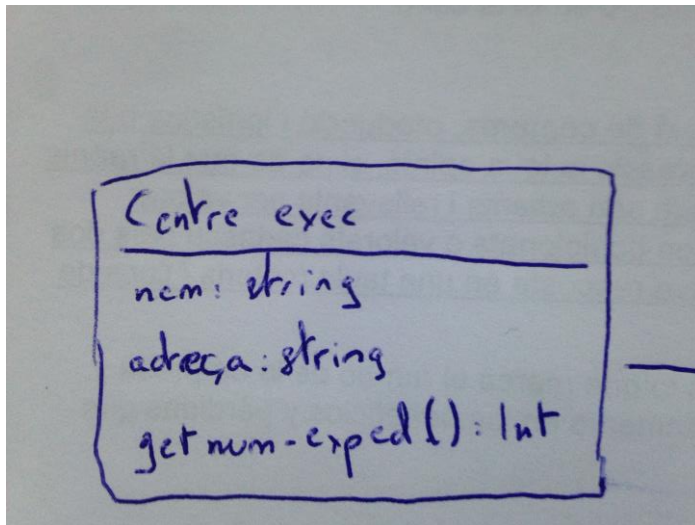 Centre exec
nom: string
adreça: string
getnum-exped(): Int